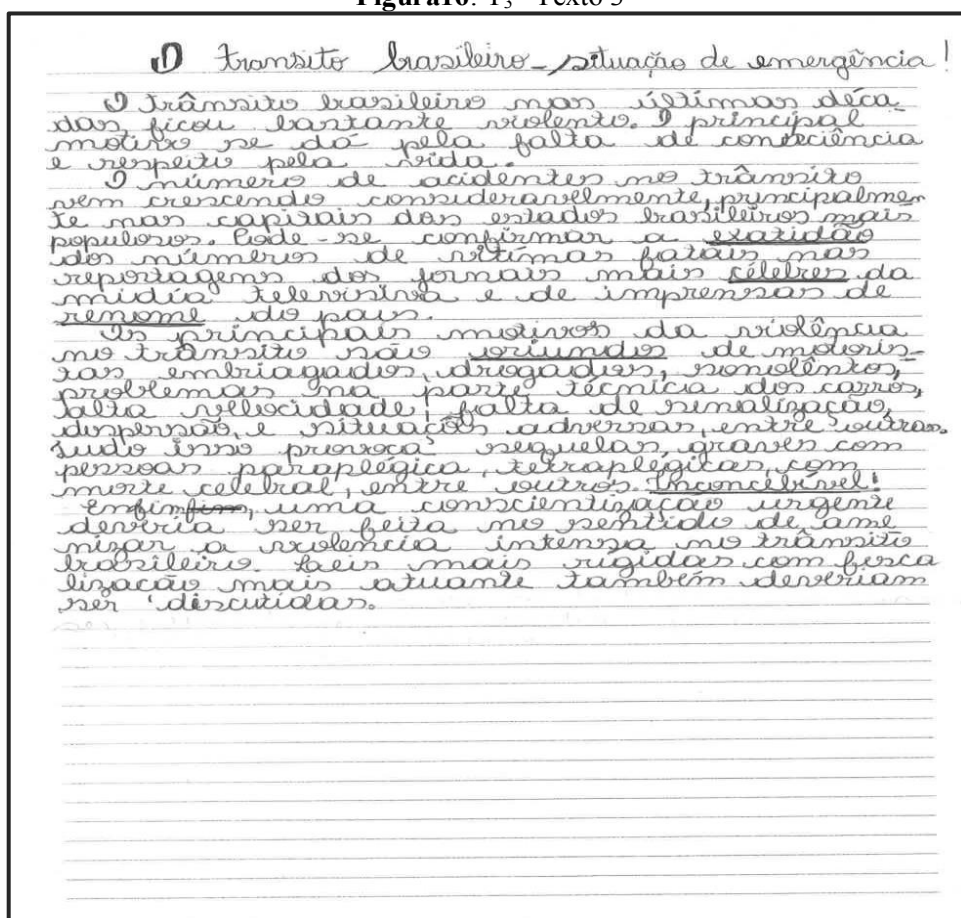 Figura16: T3 - Texto 3
O transito brasileiro - situação de emergência!
O trânsito brasileiro nas últimas déca
das ficou bastante violento. O principal
motivo se dá pela falta de consciência
e respeito pela vida.
O número de acidentes no trânsito
vem crescendo consideravelmente, principalmen
te nas capitais dos estados brasileiros mais
populosos. Pode-se confirmar a exatidão
dos números de vítimas fatais nas
reportagens dos jornais mais célebres da
mídia televisiva e de imprensas de
renome do país.
Os principais motivos da violência
no trânsito são oriundos de motoris-
tas embriagados, drogados, sonolêntos,
problemas na parte técnicia dos carros,
falta vellocidade, falta de sinalização,
dispersão, e situações adversas, entre outras.
Tudo isso provoca sequelas, graves com
pessoas paraplégica, tetraplégicas, com
morte celebral, entre outros. Inconcebível!
Enfim, uma conscientização urgente
deveria ser feita no sentido de ame
nizar a violência intensa no trânsito
brasileiro. Leis mais rigidas com fisca
lização mais atuante também deveriam
ser discutidas.